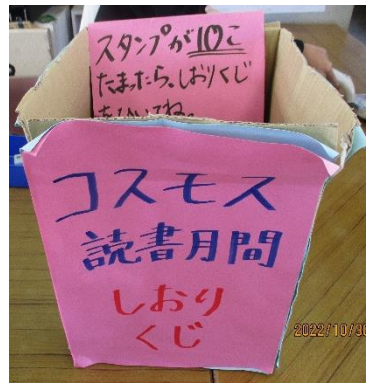 スタンプが10こ
たまったら、しおりくじ
をひいてね。
コスモス
読書月間
しおり
くじ
2022/10/30